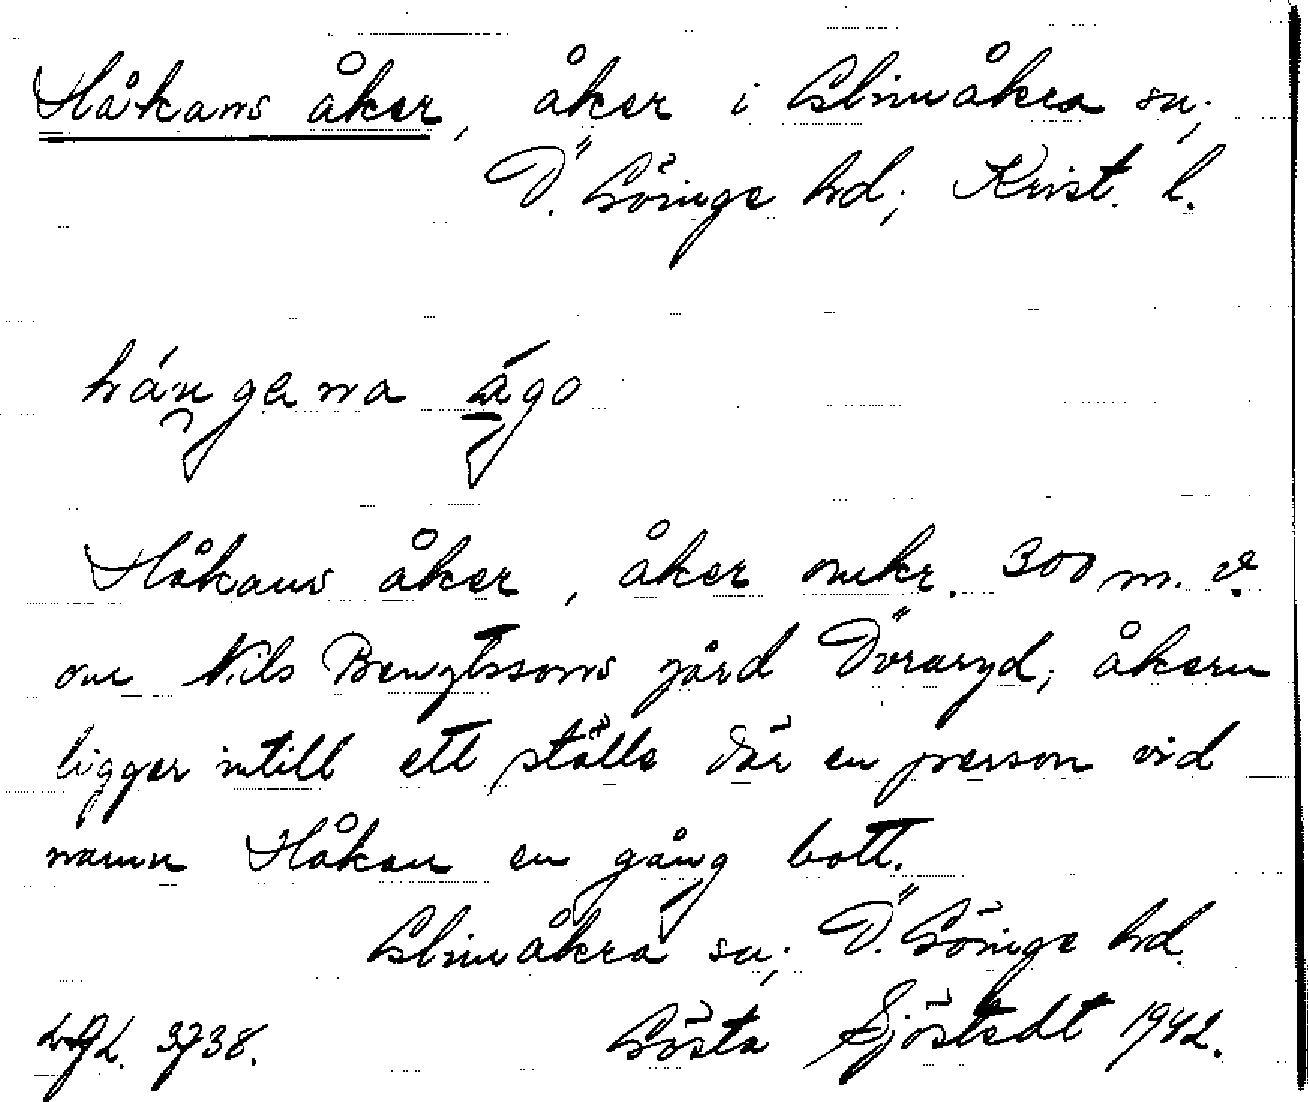 Håkans åker, åker i Glimåkra sn;
Ö. Göinge hd; Krist. l.
hángana ágo
Håkans åker, åker omkr. 300 m. v.
om Nils Bengtssons gård Öraryd; åkern
ligger intill ett ställe där en person vid
namn Håkan en gång bott.
Glimåkra sn; Ö. Göinge hd.
3738. Gösta Sjöstedt 1942.